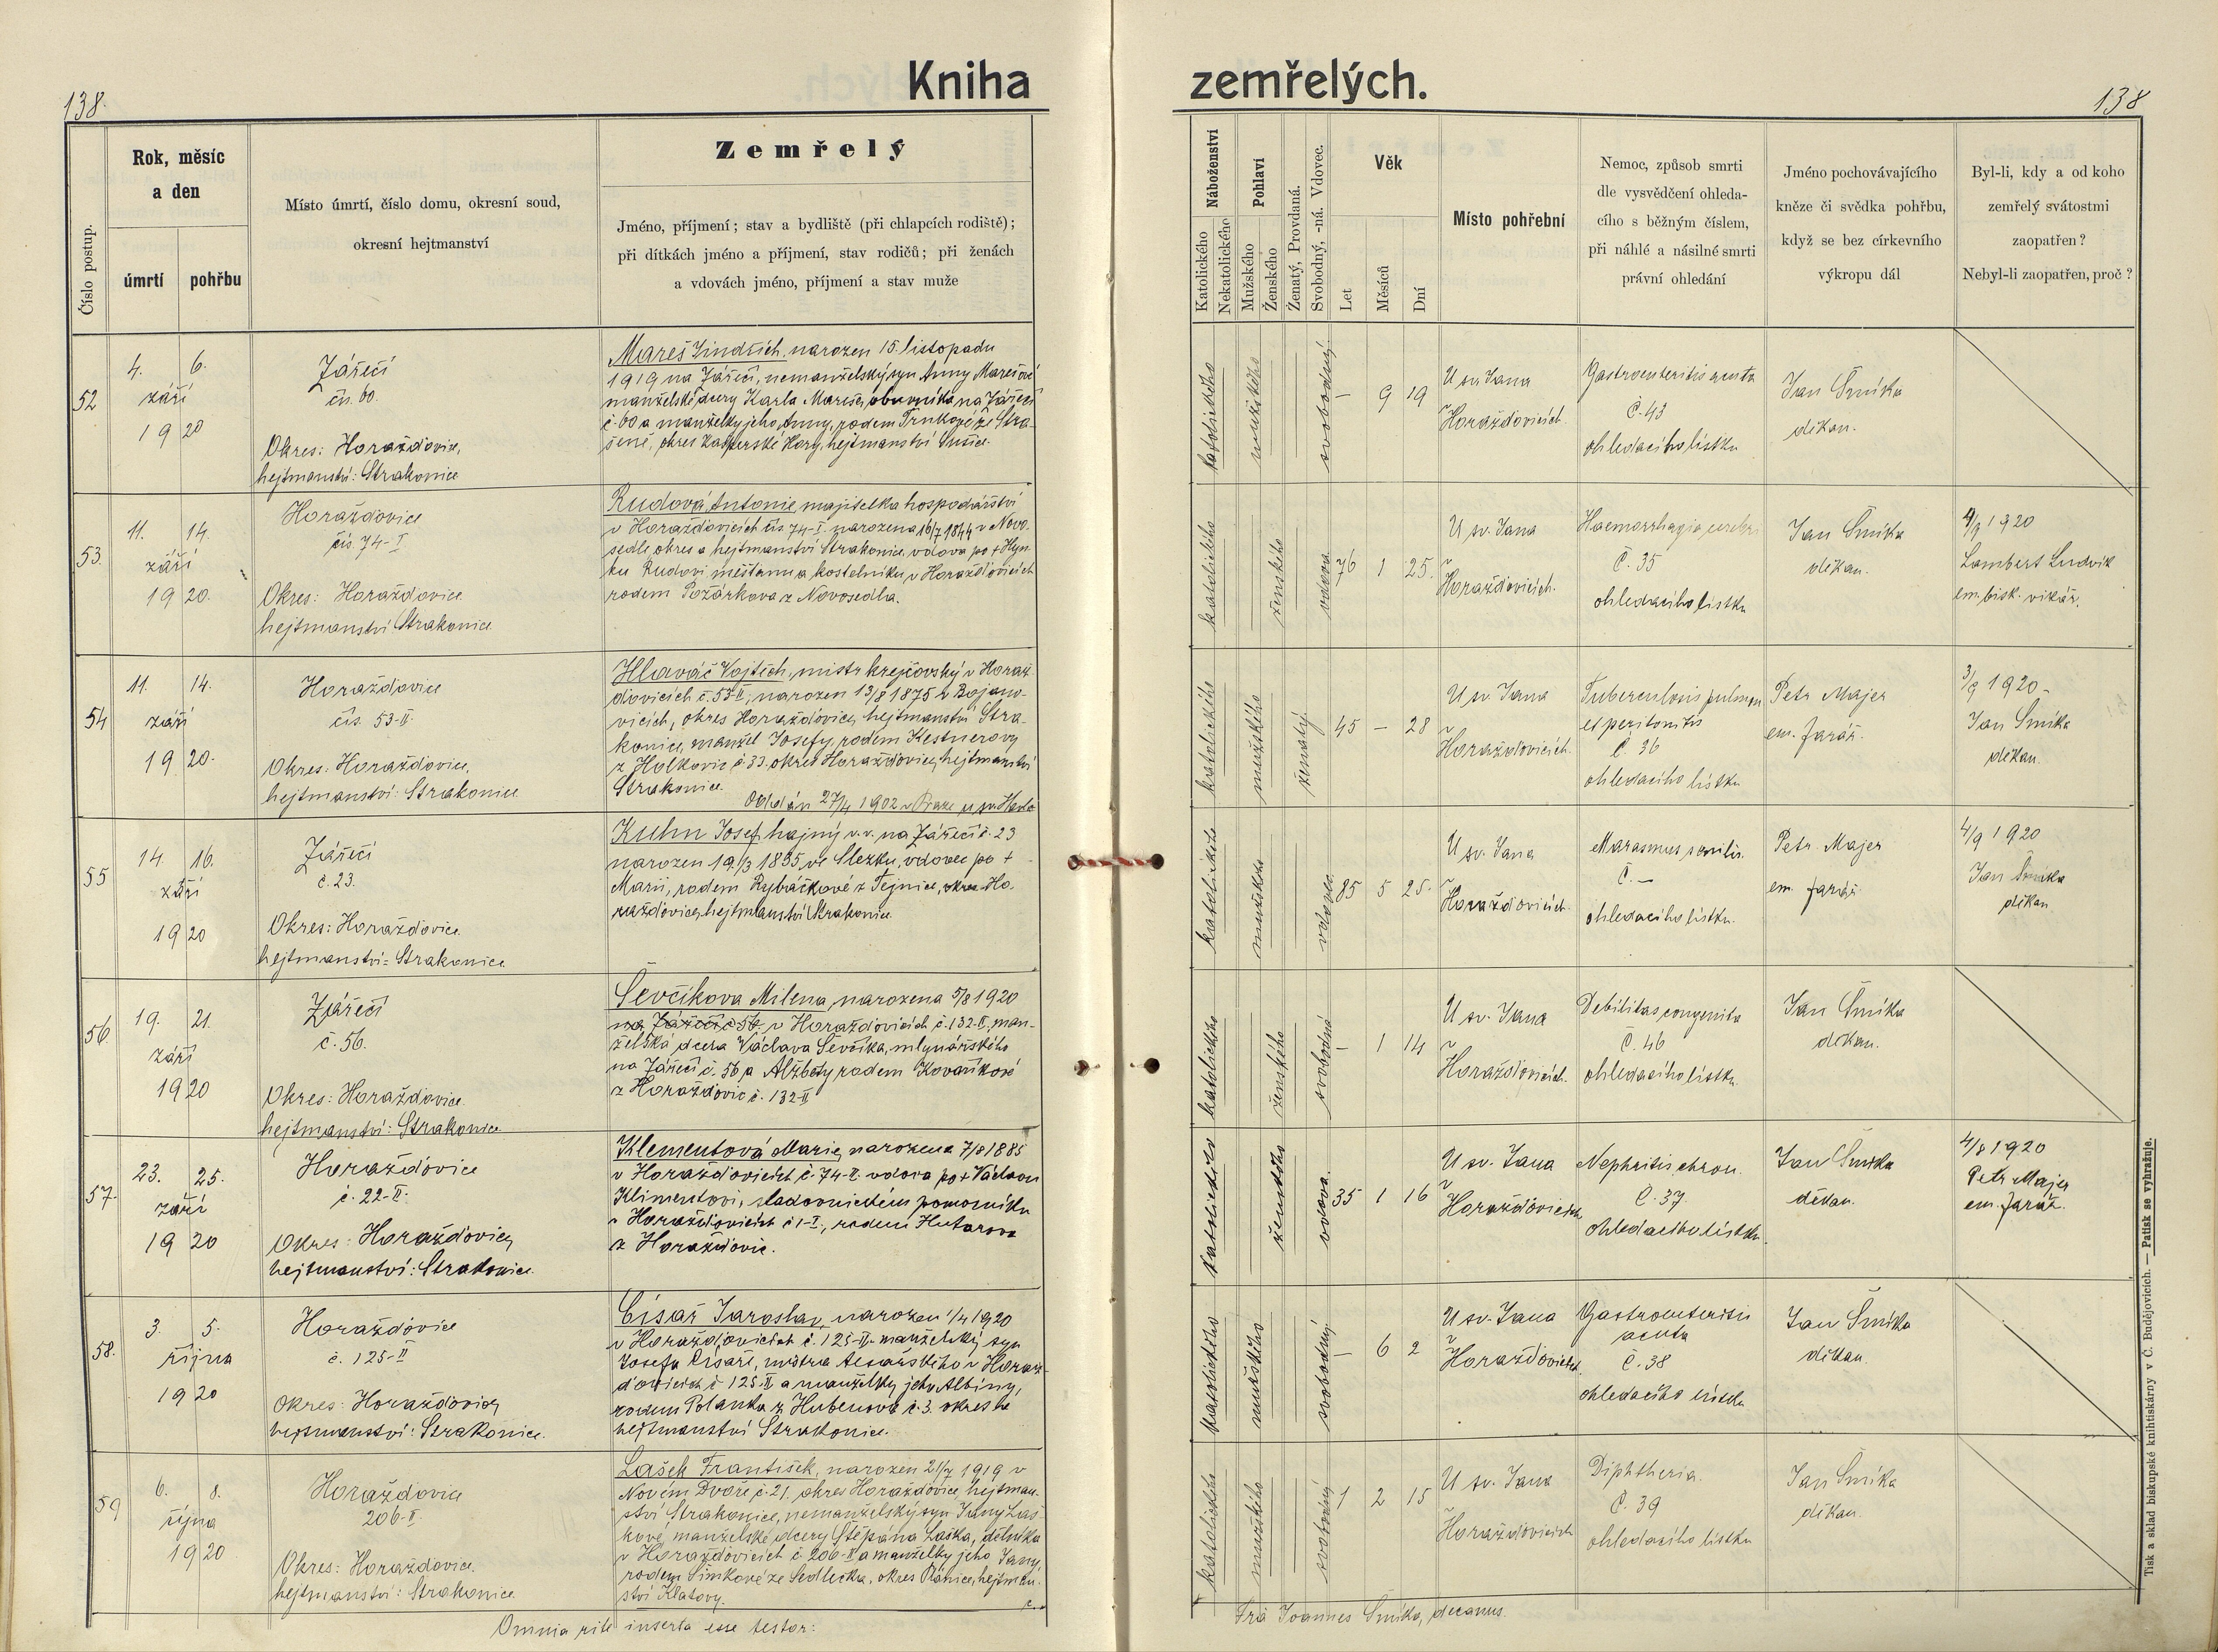 138.
Kniha
Číslo postup.
Rok, měsíc
a den
úmrtí
pohřbu
Místo úmrtí, číslo domu, okresní soud,
okresní hejtmanství
Zemřelý
Jméno, příjmení; stav a bydliště (při chlapcích rodiště);
při dítkách jméno a příjmení, stav rodičů; při ženách
a vdovách jméno, příjmení a stav muže
52
4. 6.
září
19 20
Zářečí
čís. 60.
Okres: Horažďovice,
hejtmanství: Strakonice
Mareš Jindřich, narozen 15. listopadu
1919 na Zářečí, nemanželský syn Anny Marešové
manželské dcery Karla Mareše, obuvníka na Zářečí
č. 60 a manželky jeho Anny, rodem Trnkové ze Stra-
šeně, okres Kašperské Hory, hejtmanství Sušice.
53.
11. 14.
září
19 20.
Horažďovice
čís. 74-I
Okres: Horažďovice
hejtmanství Strakonice.
Rudová Antonie, majitelka hospodářství
v Horažďovicích čís. 74-I. narozena 16/7 1844 v Novo-
sedle, okres a hejtmanství Strakonice, vdova po + Hyn-
ku Rudovi, měšťanu a kostelníku v Horažďovicích
rodem Požárkova z Novosedla.
54
11. 14.
září
19 20.
Horažďovice
čís. 53-II.
Okres: Horažďovice,
hejtmanství: Strakonice
Hlaváč Vojtěch, mistr krejčovský v Horaž-
ďovicích č. 53-II, narozen 13/8 1875 v Bojano-
vicích, okres Horažďovice, hejtmanství Stra-
konice, manžel Josefy, rodem Kestnerovy
z Holkovic č. 33. okres Horažďovice, hejtmanství
Strakonice.
Oddán 27/4 1902 v Praze u sv. Havla
55
14. 16.
září
19 20
Zářečí
č. 23.
Okres: Horažďovice
hejtmanství: Strakonice
Kuhn Josef, hajný v. v. na Zářečí č. 23
narozen 19/3 1835, ve Slezku, vdovec po +
Marii, rodem Rybáčkové z Tejnice, okres Ho-
ražďovice, hejtmanství Strakonice
56.
19. 21.
září
19 20
Zářečí
č. 56.
Okres: Horažďovice.
hejtmanství: Strakonice
Ševčíkova Milena, narozena 5/8 1920
na Zářečí č. 56 v Horažďovicích č. 132-II, man-
želská dcera Václava Ševčíka, mlynářského
na Zářečí č. 56 a Alžběty rodem Kovaříkové
z Horažďovic č. 132-II
57.
23. 25.
září
19 20
Horažďovice
č. 22-II.
Okres: Horažďovice,
hejtmanství: Strakonice.
Klementová Marie, narozena 7/8 1885
v Horažďovicích č. 74-II. vdova po + Václavu
Klimentovi, sladovnickém pomocníku
v Horažďovicích č 1-I., rodem Hutarova
z Horažďovic.
58.
3. 5.
října
19 20
Horažďovice
č. 125-II
Okres: Horažďovice,
hejtmanství: Strakonice.
Císař Jaroslav, narozen 1/4 1920
v Horažďovicích č. 125-II. manželský syn
Josefa Císaře, mistra tesařského v Horaž-
ďovicích č 125-II a manželky jeho Albiny,
rodem Polanka z Hubenova č. 3. okres
hejtmanství Strakonice.
59
6. 8.
října
19 20
Horažďovice
206-II.
Okres: Horažďovice.
hejtmanství: Strakonice
Lašek František, narozen 21/7 1919 v
Novém Dvoře č. 21. okres Horažďovice, hejtman-
ství Strakonice, nemanželský syn Jany Laš-
kové, manželské dcery Štěpána Laška, dělníka
v Horažďovicích č. 206-II a manželky jeho Jany
rodem Šimkové ze Sedlečka, okres Plánice, hejtman-
ství Klatovy.
Omnia rite inserta esse testor:
zemřelých.
138
Náboženství
Katolického
Nekatolického
Pohlaví
Mužského
Ženského
Ženatý, Provdaná.
Svobodný, -ná. Vdovec.
Věk
Let
Měsíců
Dní
Místo pohřební
Nemoc, způsob smrti
dle vysvědčení ohleda-
cího s běžným číslem,
při náhlé a násilné smrti
právní ohledání
Jméno pochovávajícího
kněze či svědka pohřbu,
když se bez církevního
výkropu dál
Byl-li, kdy a od koho
zemřelý svátostmi
zaopatřen?
Nebyl-li zaopatřen, proč?
katolického mužského svobodný — 9 19
U sv. Jana
v
Horažďovicích.
Gastroenteritis acuta
Č. 43
ohledacího lístku
Jan Šmíka
děkan.
katolického ženského vdova 76 1 25.
U sv. Jana
v
Horažďovicích.
Haemorrhagia cerebri
Č. 35
ohledacího lístku
Jan Šmíka
děkan.
4/9 1920
Lambert Ludvík
em. bisk. vikář.
katolického mužského ženatý. 45 — 28
U sv. Jana
v
Horažďovicích.
Tuberculosis pulmon
et peritonitis
Č. 36
ohledacího lístku
Petr Majer
em. farář.
3/9 1920
Jan Šmíka
děkan.
katolického mužského vdovec 85 5 25.
U sv. Jana
v
Horažďovicích.
Marasmus senilis.
Č. —
ohledacího lístku.
Petr Majer
em. farář.
4/9 1920
Jan Šmíka
děkan
katolického ženského svobodná — 1 14
U sv. Jana
v
Horažďovicích.
Debilitas congenita
Č. 46
ohledacího lístku.
Jan Šmíka
děkan.
katolického ženského vdova. 35 1 16
U sv. Jana
v
Horažďovicích
Nephritis chron.
Č. 37
ohledacího lístku.
Jan Šmíka
děkan.
4/8 1920
Petr Majer
em. farář.
katolického mužského svobodný — 6 2
U sv. Jana
v
Horažďovicích
Gastroenteritis
acuta
Č. 38
ohledacího lístku
Jan Šmíka
děkan.
katolického mužského svobodný 1 2 15
U sv. Jana
v
Horažďovicích
Diphtheria.
Č. 39
ohledacího lístku
Jan Šmíka
děkan.
Fra Joannes Šmíka, decanus.
Tisk a sklad biskupské knihtiskárny v Č. Budějovicích. — Patisk se vyhražuje.